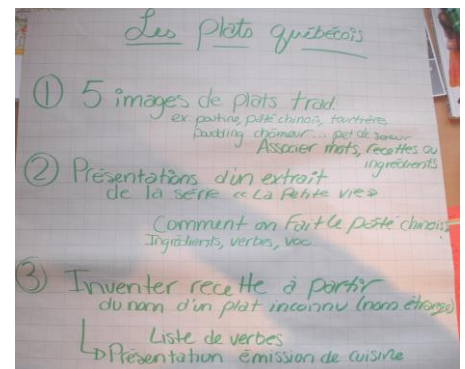 Les plats québécois
① 5 images de plats trad.
ex poutine, pâté chinois, tourtière,
pouding chômeur... pet de soeur
Associer mots, recettes ou
ingrédients
② Présentations d'un extrait
de la série « La Petite vie »
Comment on fait le pâté chinois
Ingrédients, verbes, voc.
③ Inventer recette à partir
du nom d'un plat inconnu (nom étrange)
Liste de verbes
Présentation émission de cuisine